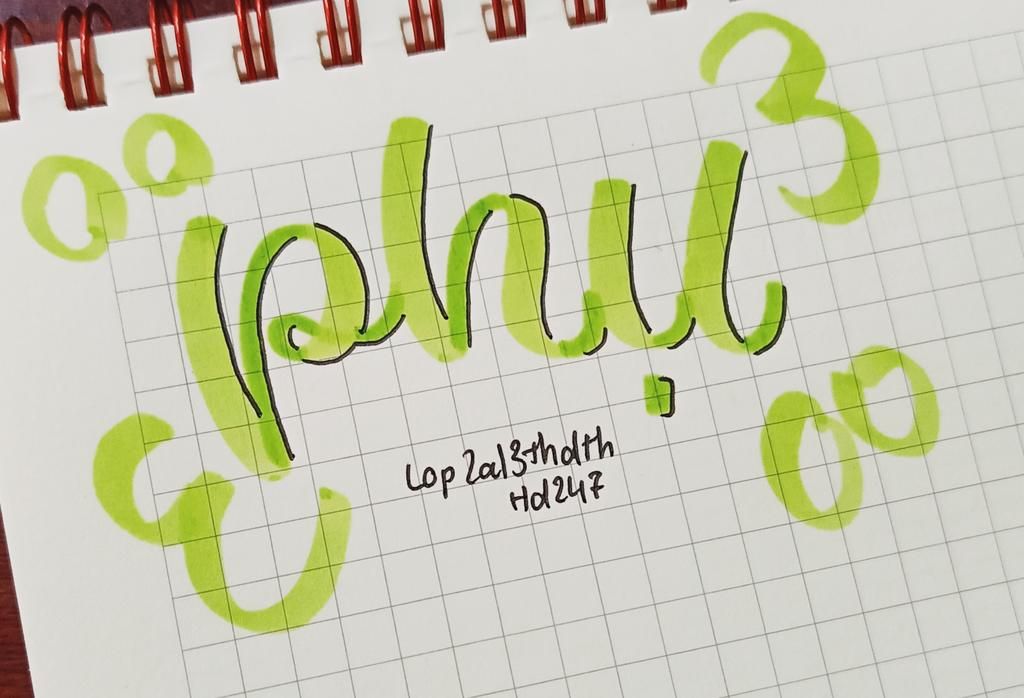 phụ
Lop 2a13thdth
Hd247